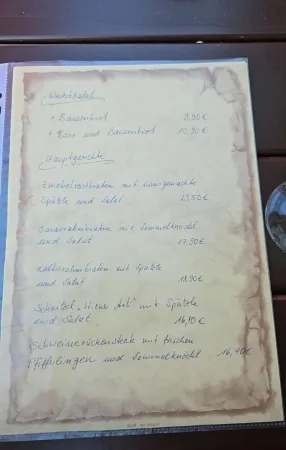 Wurstsalat
+ Bauernbrot 8,90€
+ Käse und Bauernbrot 10,90€
Hauptgerichte
Zwiebelrostbraten mit hausgemachte
Spätzle und Salat 23,50€
Sauerrahmbraten mit Semmelknödl
und Salat 17,90€
Kalbsrahmbraten mit Spätzle
und Salat 18,90€
Schnitzel „Wiener Art" mit Spätzle
und Salat 16,10€
Schweinerückensteak mit frischen
Pfifferlingen und Semmelknödl 16,90€